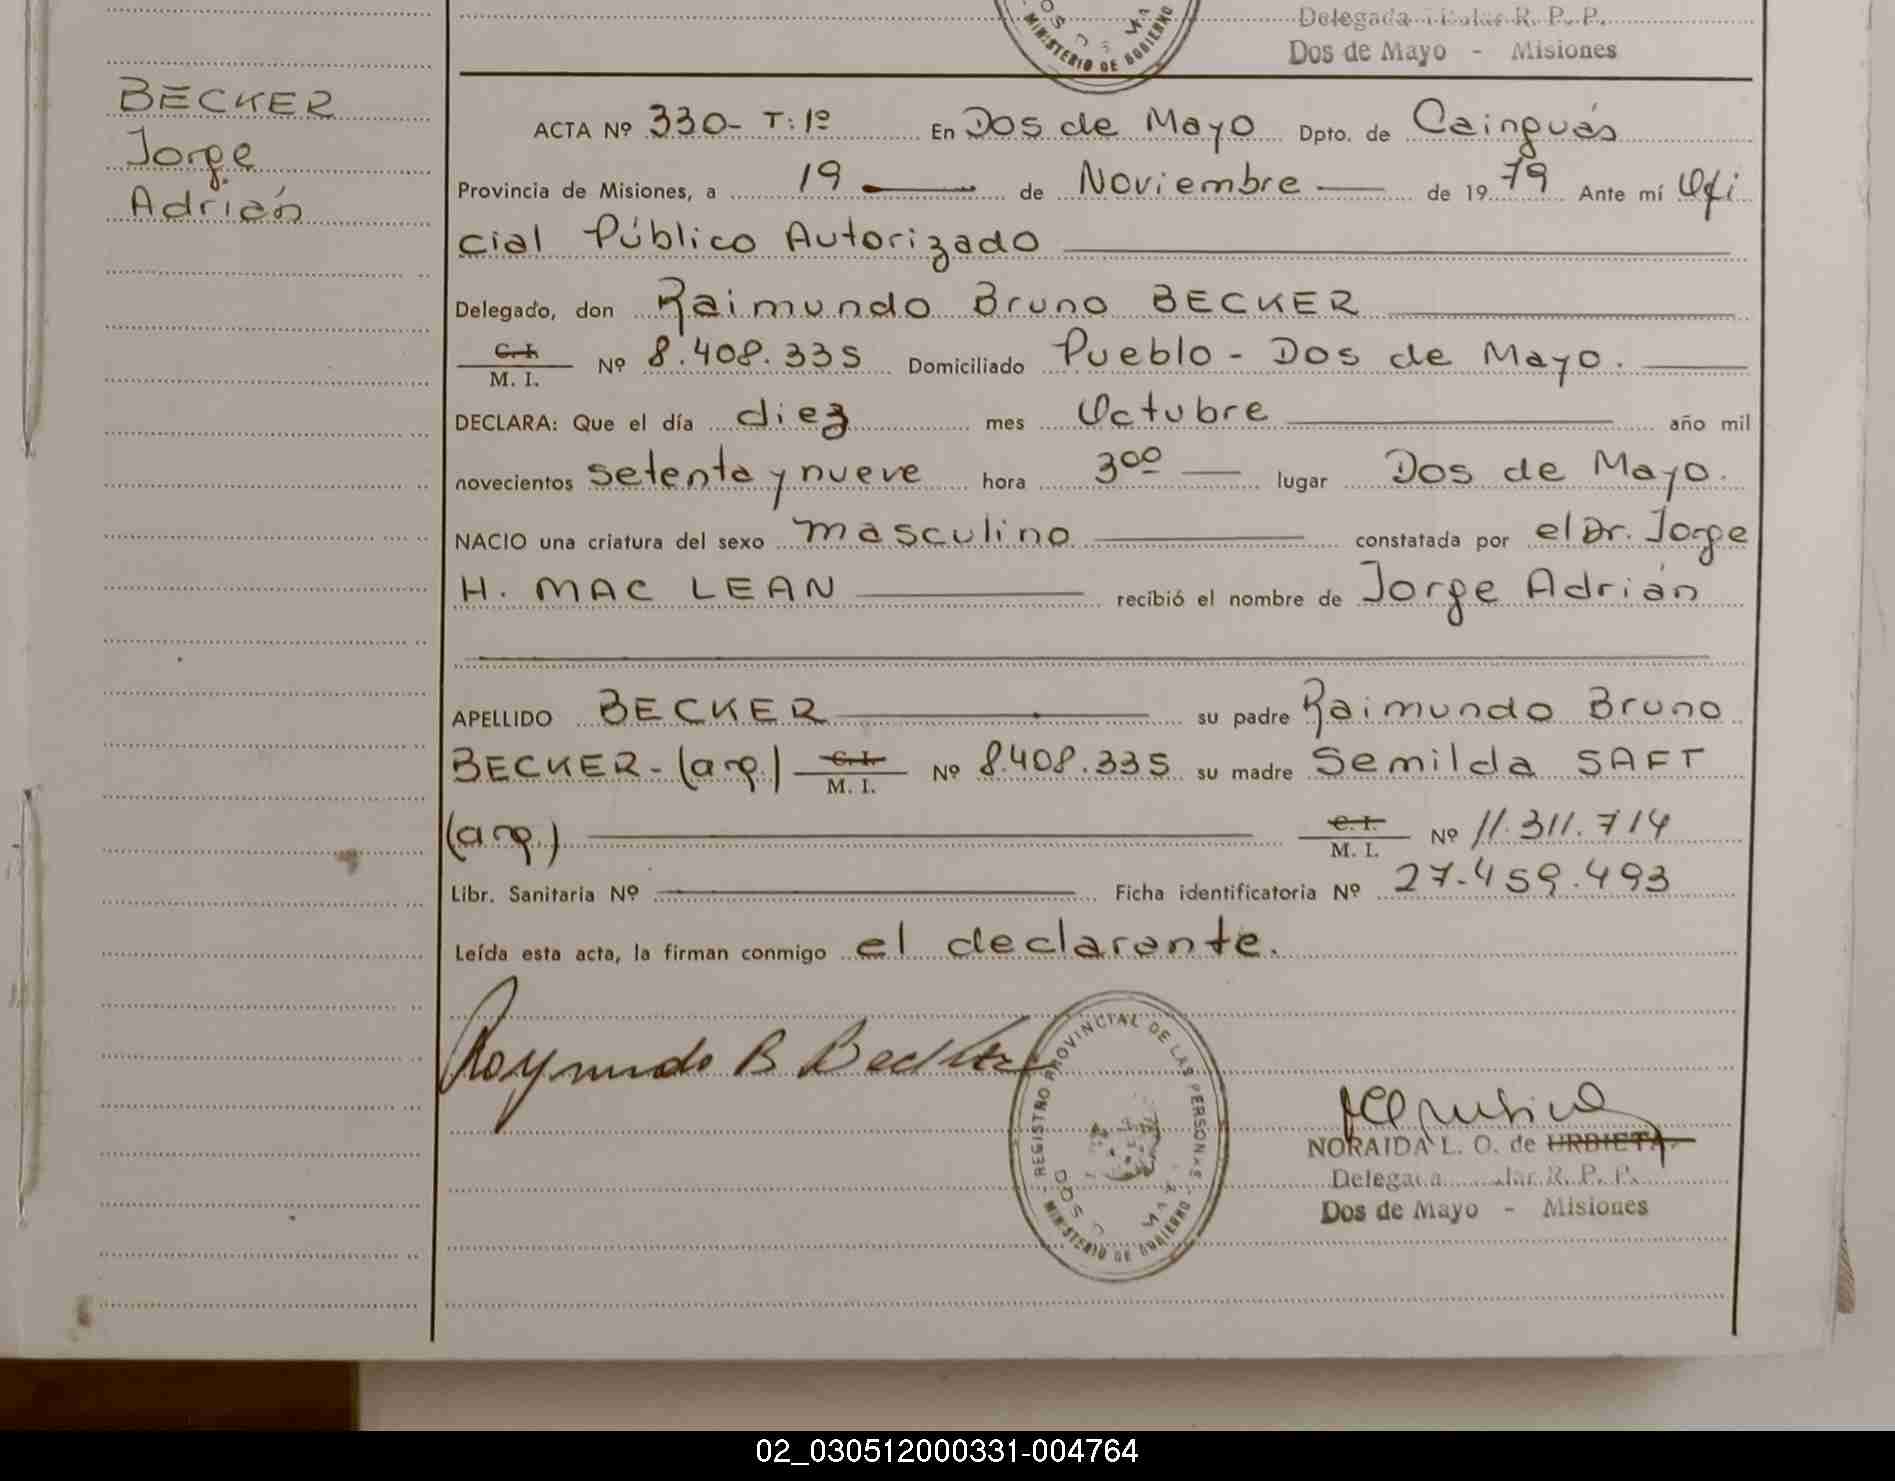 MINISTERIO DE GOBIERNO
Delegada R. P. P.
Dos de Mayo - Misiones
BECKER
Jorge
Adrián
ACTA Nº 330- T: 1º En Dos de Mayo Dpto. de Cainguás
Provincia de Misiones, a 19 de Noviembre de 1979 Ante mí Ofi
cial Público Autorizado
Delegado, don Raimundo Bruno BECKER
C. I.
M. I. Nº 8.408.335 Domiciliado Pueblo - Dos de Mayo.
DECLARA: Que el día diez mes Octubre año mil
novecientos setenta y nueve hora 3ºº lugar Dos de Mayo.
NACIO una criatura del sexo masculino constatada por el Dr. Jorge
H. MAC LEAN recibió el nombre de Jorge Adrián
APELLIDO BECKER su padre Raimundo Bruno
BECKER - (arg.) C. I. M. I. Nº 8.408.335 su madre Semilda SAFT
(arg.) C. I. M. I. Nº 11.311.714
Libr. Sanitaria Nº Ficha identificatoria Nº 27.459.493
Leída esta acta, la firman conmigo el declarante.
Raymundo B Becker
REGISTRO PROVINCIAL DE LAS PERSONAS
MINISTERIO DE GOBIERNO
NORAIDA L. O. de URBIETA
Delegada R. P. P.
Dos de Mayo - Misiones
02_030512000331-004764